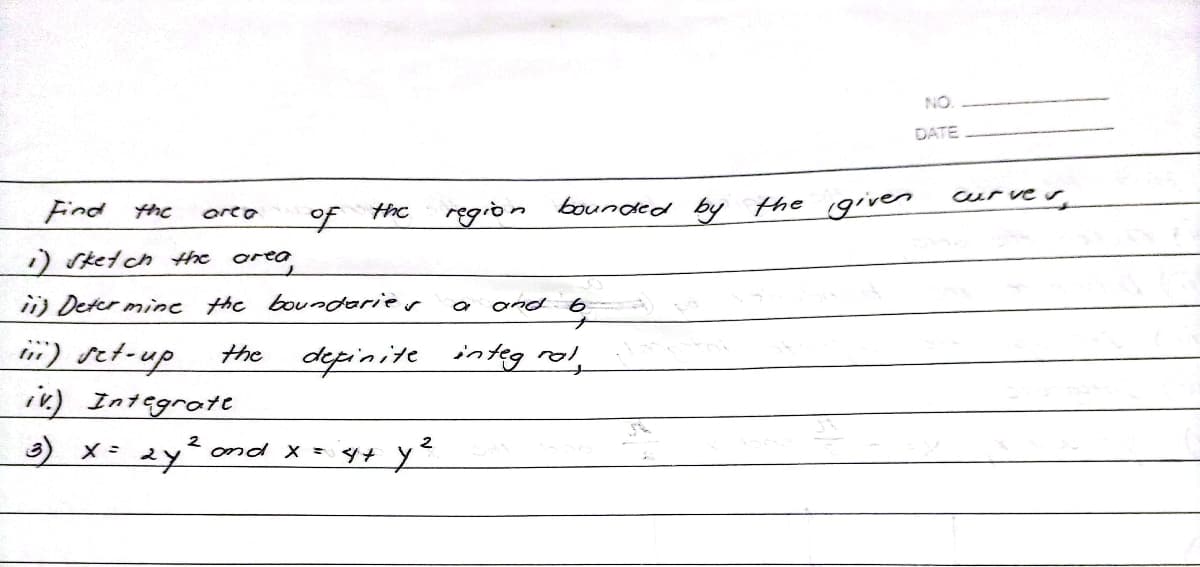 NO.
DATE
Find the area of the region bounded by the given curves,
i) sketch the area,
ii) Determine the boundaries a and b,
iii) set-up the definite integral,
iv.) Integrate
3) x = 2y² and x = 4+ y²